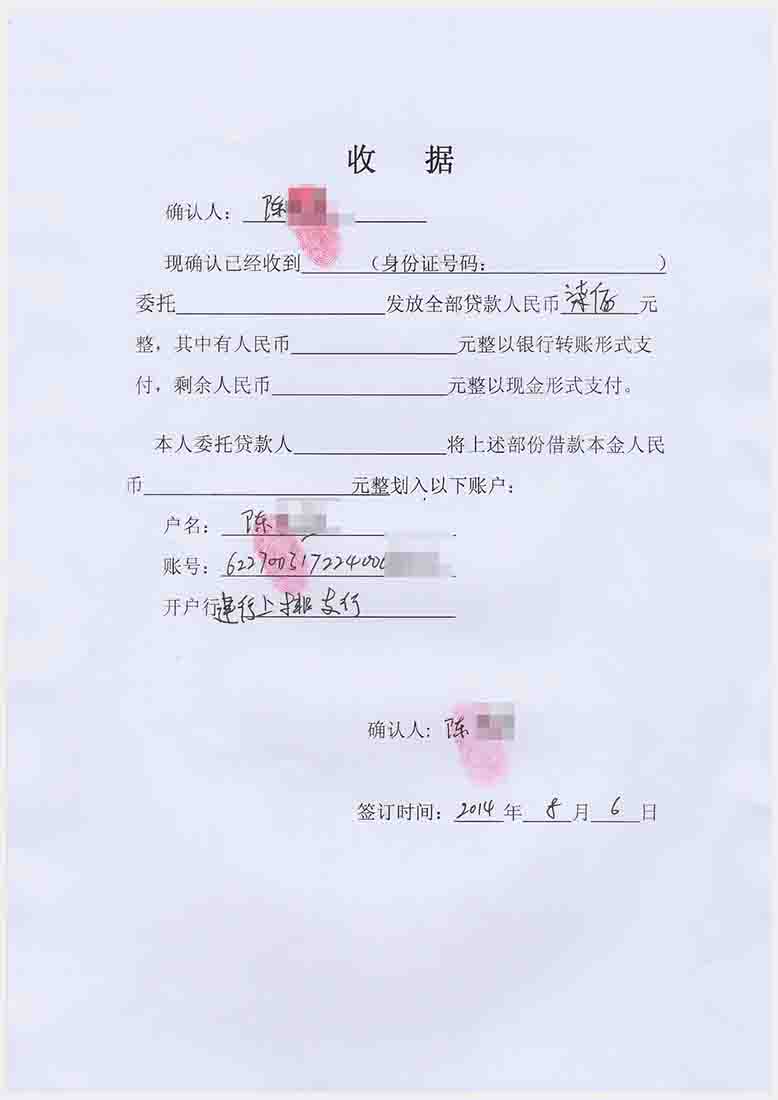 收 据
确认人：陈
现确认已经收到（身份证号码：）
委托发放全部贷款人民币柒佰元
整，其中有人民币元整以银行转账形式支
付，剩余人民币元整以现金形式支付。
本人委托贷款人将上述部份借款本金人民
币元整划入以下账户：
户名：陈
账号：622700317224006
开户行建行上排支行
确认人：陈
签订时间：2014年8月6日